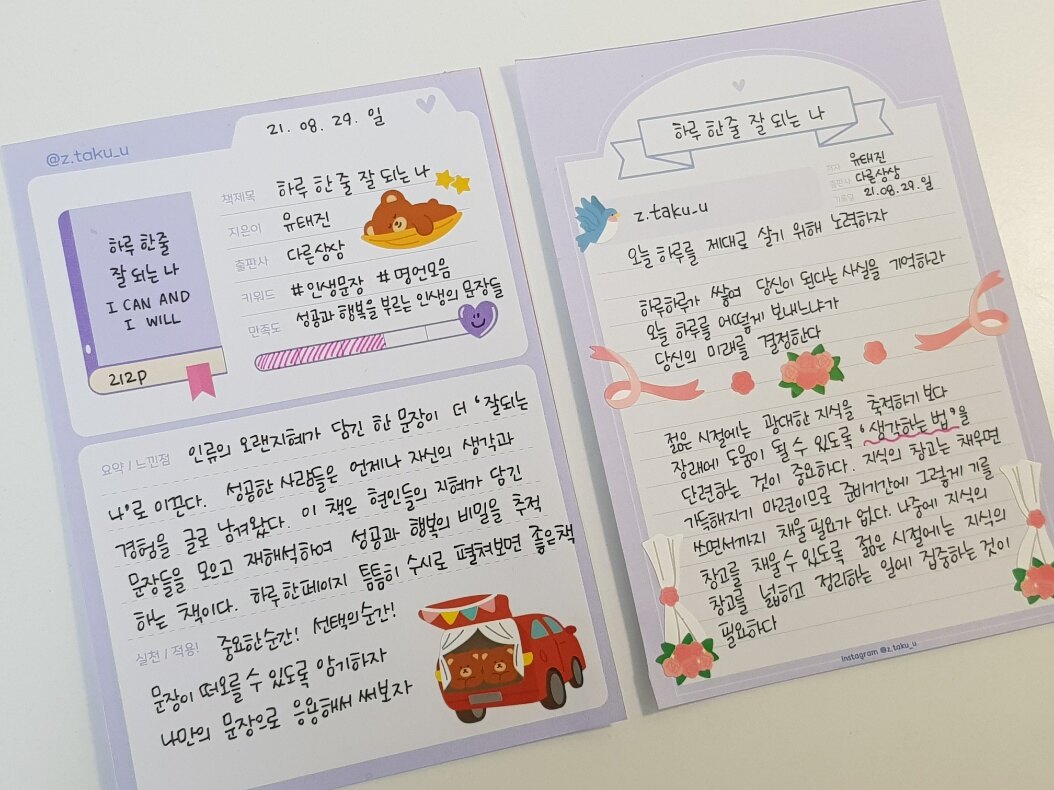 @z.taku_u
21. 08. 29. 일
책제목 하루 한 줄 잘 되는 나
지은이 유태진
출판사 다른상상
키워드 #인생문장 #명언모음
만족도 성공과 행복을 부르는 인생의 문장들
하루 한줄
잘 되는 나
I CAN AND
I WILL
212p
요약 / 느낀점 인류의 오랜지혜가 담긴 한 문장이 더 '잘되는
나'로 이끈다. 성공한 사람들은 언제나 자신의 생각과
경험을 글로 남겨왔다. 이 책은 현인들의 지혜가 담긴
문장들을 모으고 재해석하여 성공과 행복의 비밀을 추적
하는 책이다. 하루 한페이지 틈틈히 수시로 펼쳐보면 좋은책
실천 / 적용! 중요한순간! 선택의순간!
문장이 떠오를 수 있도록 암기하자
나만의 문장으로 응용해서 써보자
하루 한 줄 잘 되는 나
저자 유태진
출판사 다른상상
기록일 21.08.29.일
z.taku_u
오늘 하루를 제대로 살기 위해 노력하자
하루하루가 쌓여 당신이 된다는 사실을 기억하라
오늘 하루를 어떻게 보내느냐가
당신의 미래를 결정한다
젊은 시절에는 광대한 지식을 축적하기 보다
장래에 도움이 될 수 있도록 '생각하는 법'을
단련하는 것이 중요하다. 지식의 창고는 채우면
가득해지기 마련이므로 준비기간에 그렇게 기를
쓰면서까지 채울 필요가 없다. 나중에 지식의
창고를 채울 수 있도록 젊은 시절에는 지식의
창고를 넓히고 정리하는 일에 집중하는 것이
필요하다
Instagram @z.taku_u